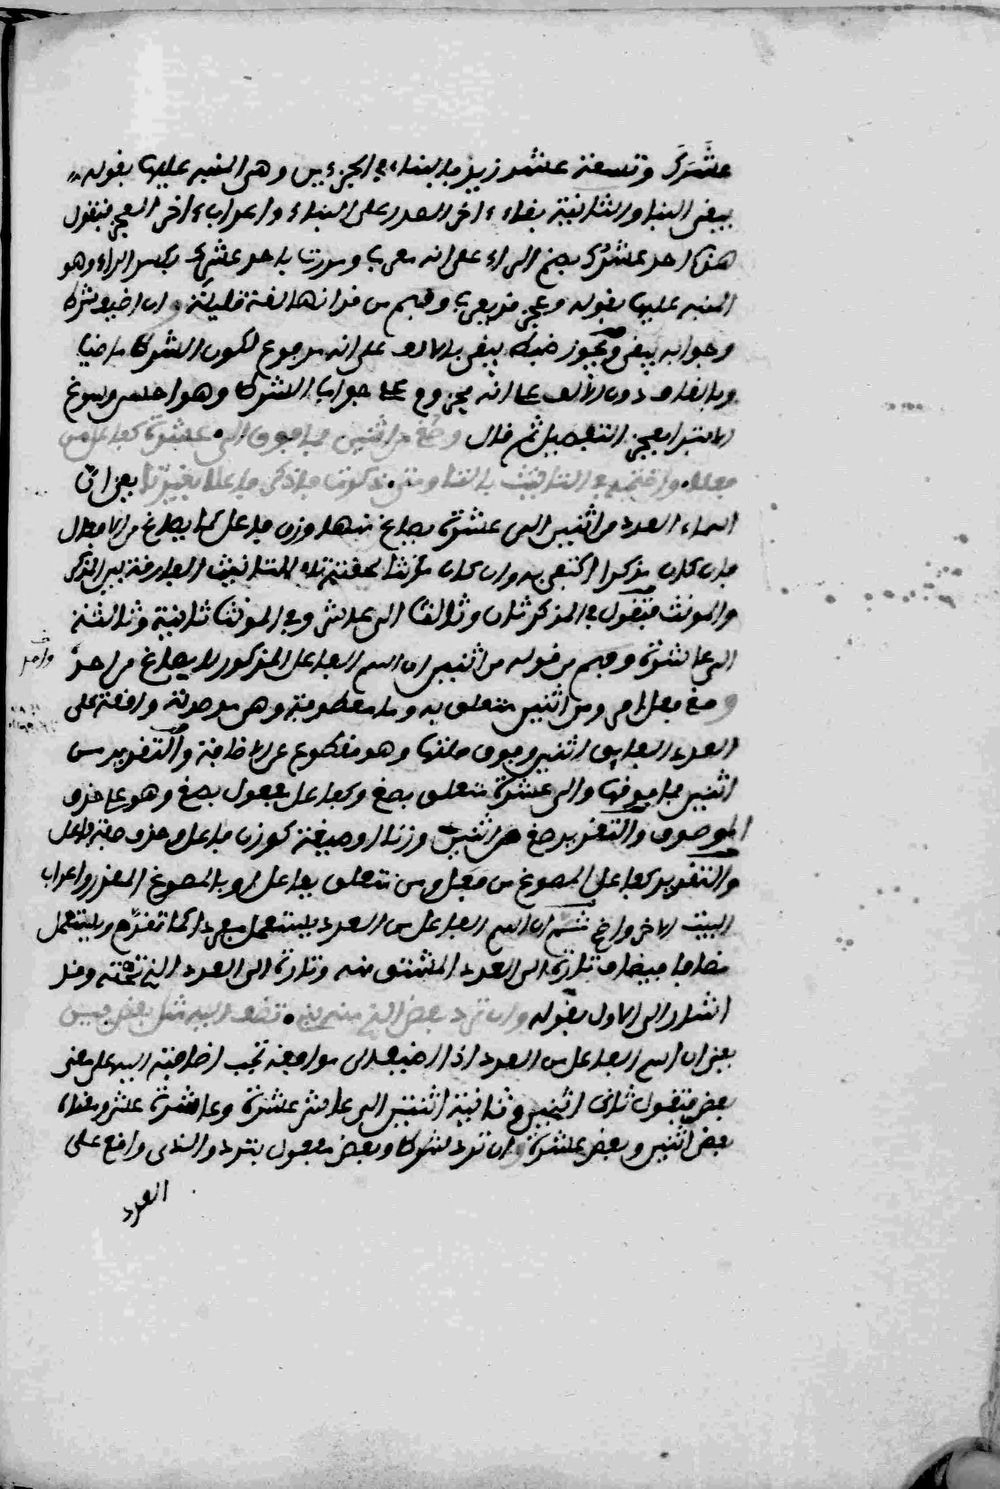 عشرك وتسعة عشر زيد بالبناء في الجزءين وهي المنبه عليها بقوله
يبقى البنا والثانية بقاء اخر الصدر على البناء واعراب اخر العجز فتقول
هذا احد عشرك بضم الراء على انه معرب ومررت باحد عشرك بكسر الراء وهو
المنبه عليها بقوله وعجز قد يعرب وفهم من قد انها لغة قليلة وان اضيف شرط
وجوابه يبقى ويجوز ضبط يبقى بالالف على انه مرفوع لكون الشرط ماضيا
وبالقاف دون الالف على انه مجزوم على جواب الشرط وهو احسن وسوغ
الابتدا بعجز التفصيل ثم قال وصغ من اثنين فما فوق الى عشرة كفاعل من
فعلا واختمه في التانيث بالتا ومتى ذكرت فاذكر فاعلا بغير تا يعني ان
اسماء العدد من اثنين الى عشرة يصاغ منها وزن فاعل كما يصاغ من الافعال
فان كان مذكرا اكتفي به وان كان مؤنثا لحقته تاء التانيث الفارقة بين المذكر
والمونث فتقول في المذكر ثان وثالث الى عاشر وفي المونث ثانية وثالثة
الى عاشرة وفهم من قوله من اثنين ان اسم الفاعل المذكور لا يصاغ من احد
وصغ فعل امر ومن اثنين متعلق به وما معطوفة وهي موصولة واقعة على
العدد الفايق اثنين وفوق صلتها وهو مقطوع عن الاضافة والتقدير من
اثنين فما فوقها والى عشرة متعلق بصغ وكفاعل مفعول بصغ وهو على حذف
الموصوف والتقدير صغ من اثنين وزنا او صيغة كوزن فاعل وحذف صفة فاعل
والتقدير كفاعل المصوغ من فعل ومن متعلق بفاعل او بالمصوغ المقدر واعراب
البيت الاخر واضح ثم ان اسم الفاعل من العدد يستعمل مفردا كما تقدم ويستعمل
مضافا فيضاف تارة الى العدد المشتق منه وتارة الى العدد الذي تحته وقد
اشار الى الاول بقوله وان ترد بعض الذي منه بني تضف اليه مثل بعض بين
يعني ان اسم الفاعل من العدد اذا اضيف الى موافقه تجب اضافته اليه على معنى
بعض فتقول ثاني اثنين وثانية اثنتين الى عاشر عشرة وعاشرة عشر ومعناه
بعض اثنين وبعض عشرة وان ترد شرط وبعض مفعول بترد والذي واقع على
العدد
واحد